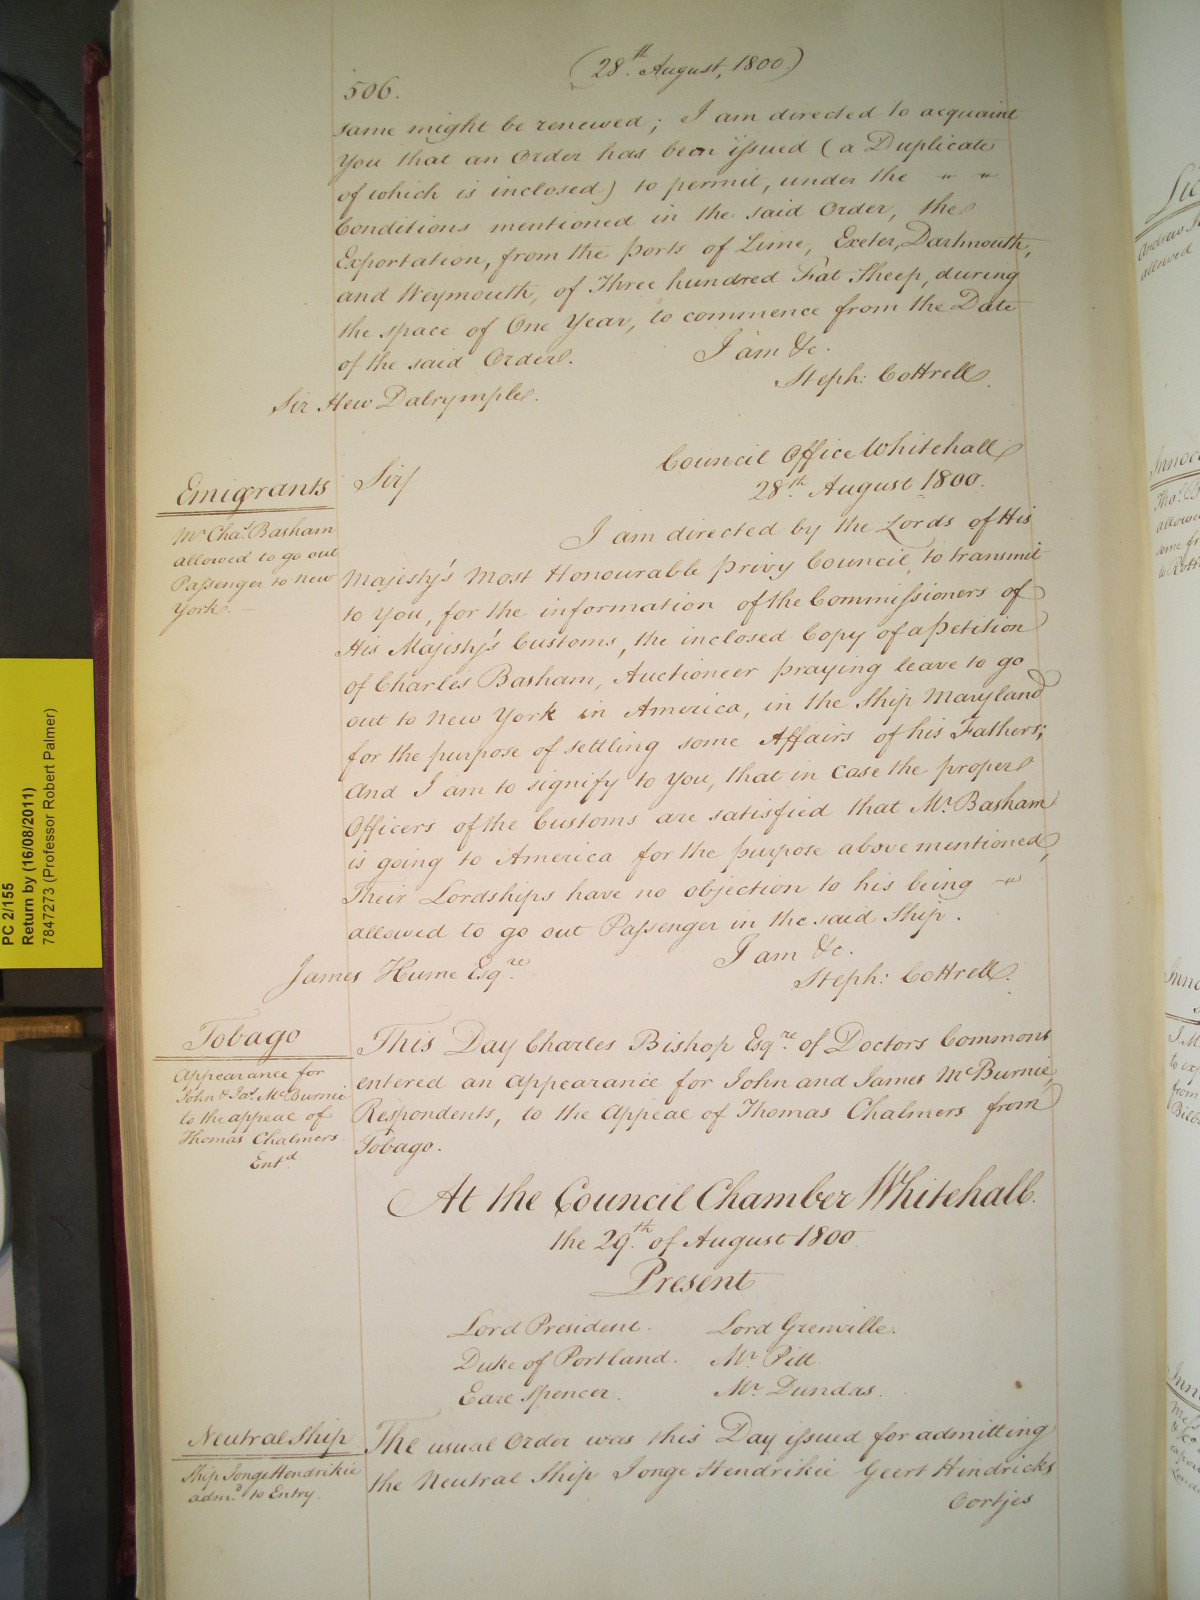 (28th. August, 1800.)
506.
same might be renewed; I am directed to acquaint
You that an Order has been issued (a Duplicate
of which is inclosed) to permit, under the
Conditions mentioned in the said Order, the
Exportation, from the ports of Lime, Exeter, Dartmouth,
and Weymouth, of Three hundred Fat Sheep, during
the space of One Year, to commence from the Date
of the said Order.
I am &c.
Steph: Cottrell.
Sir Hew Dalrymple.
Council Office Whitehall
28th. August 1800.
Emigrants
Mr. Chas. Basham
allowed to go out
Passenger to New
York. —
Sir/
I am directed by the Lords of His
Majesty's Most Honourable Privy Council, to transmit
to You, for the information of the Commissioners of
His Majesty's Customs, the inclosed Copy of a Petition
of Charles Basham, Auctioneer praying leave to go
out to New York in America, in the Ship Maryland
for the purpose of settling some Affairs of his Fathers;
And I am to signify to You, that in case the proper
Officers of the Customs are satisfied that Mr. Basham
is going to America for the purpose above mentioned,
Their Lordships have no objection to his being
allowed to go out Passenger in the said Ship.
I am &c.
Steph: Cottrell.
James Hume Esqre.
Tobago
Appearance for
John & Jas. McBurnie
to the appeal of
Thomas Chalmers
Entd.
This Day Charles Bishop Esqre. of Doctors Commons
entered an Appearance for John and James McBurnie,
Respondents, to the Appeal of Thomas Chalmers from
Tobago.
At the Council Chamber Whitehall.
the 29th. of August 1800
Present
Lord President. Lord Grenville.
Duke of Portland. Mr. Pitt.
Earl Spencer. Mr. Dundas.
Neutral Ship
Ship Jonge Hendrikie
admd. to Entry.
The usual Order was this Day issued for admitting
the Neutral Ship Jonge Hendrikie Geert Hindricks
Cortjes
PC 2/155
Return by (16/08/2011)
7847273 (Professor Robert Palmer)